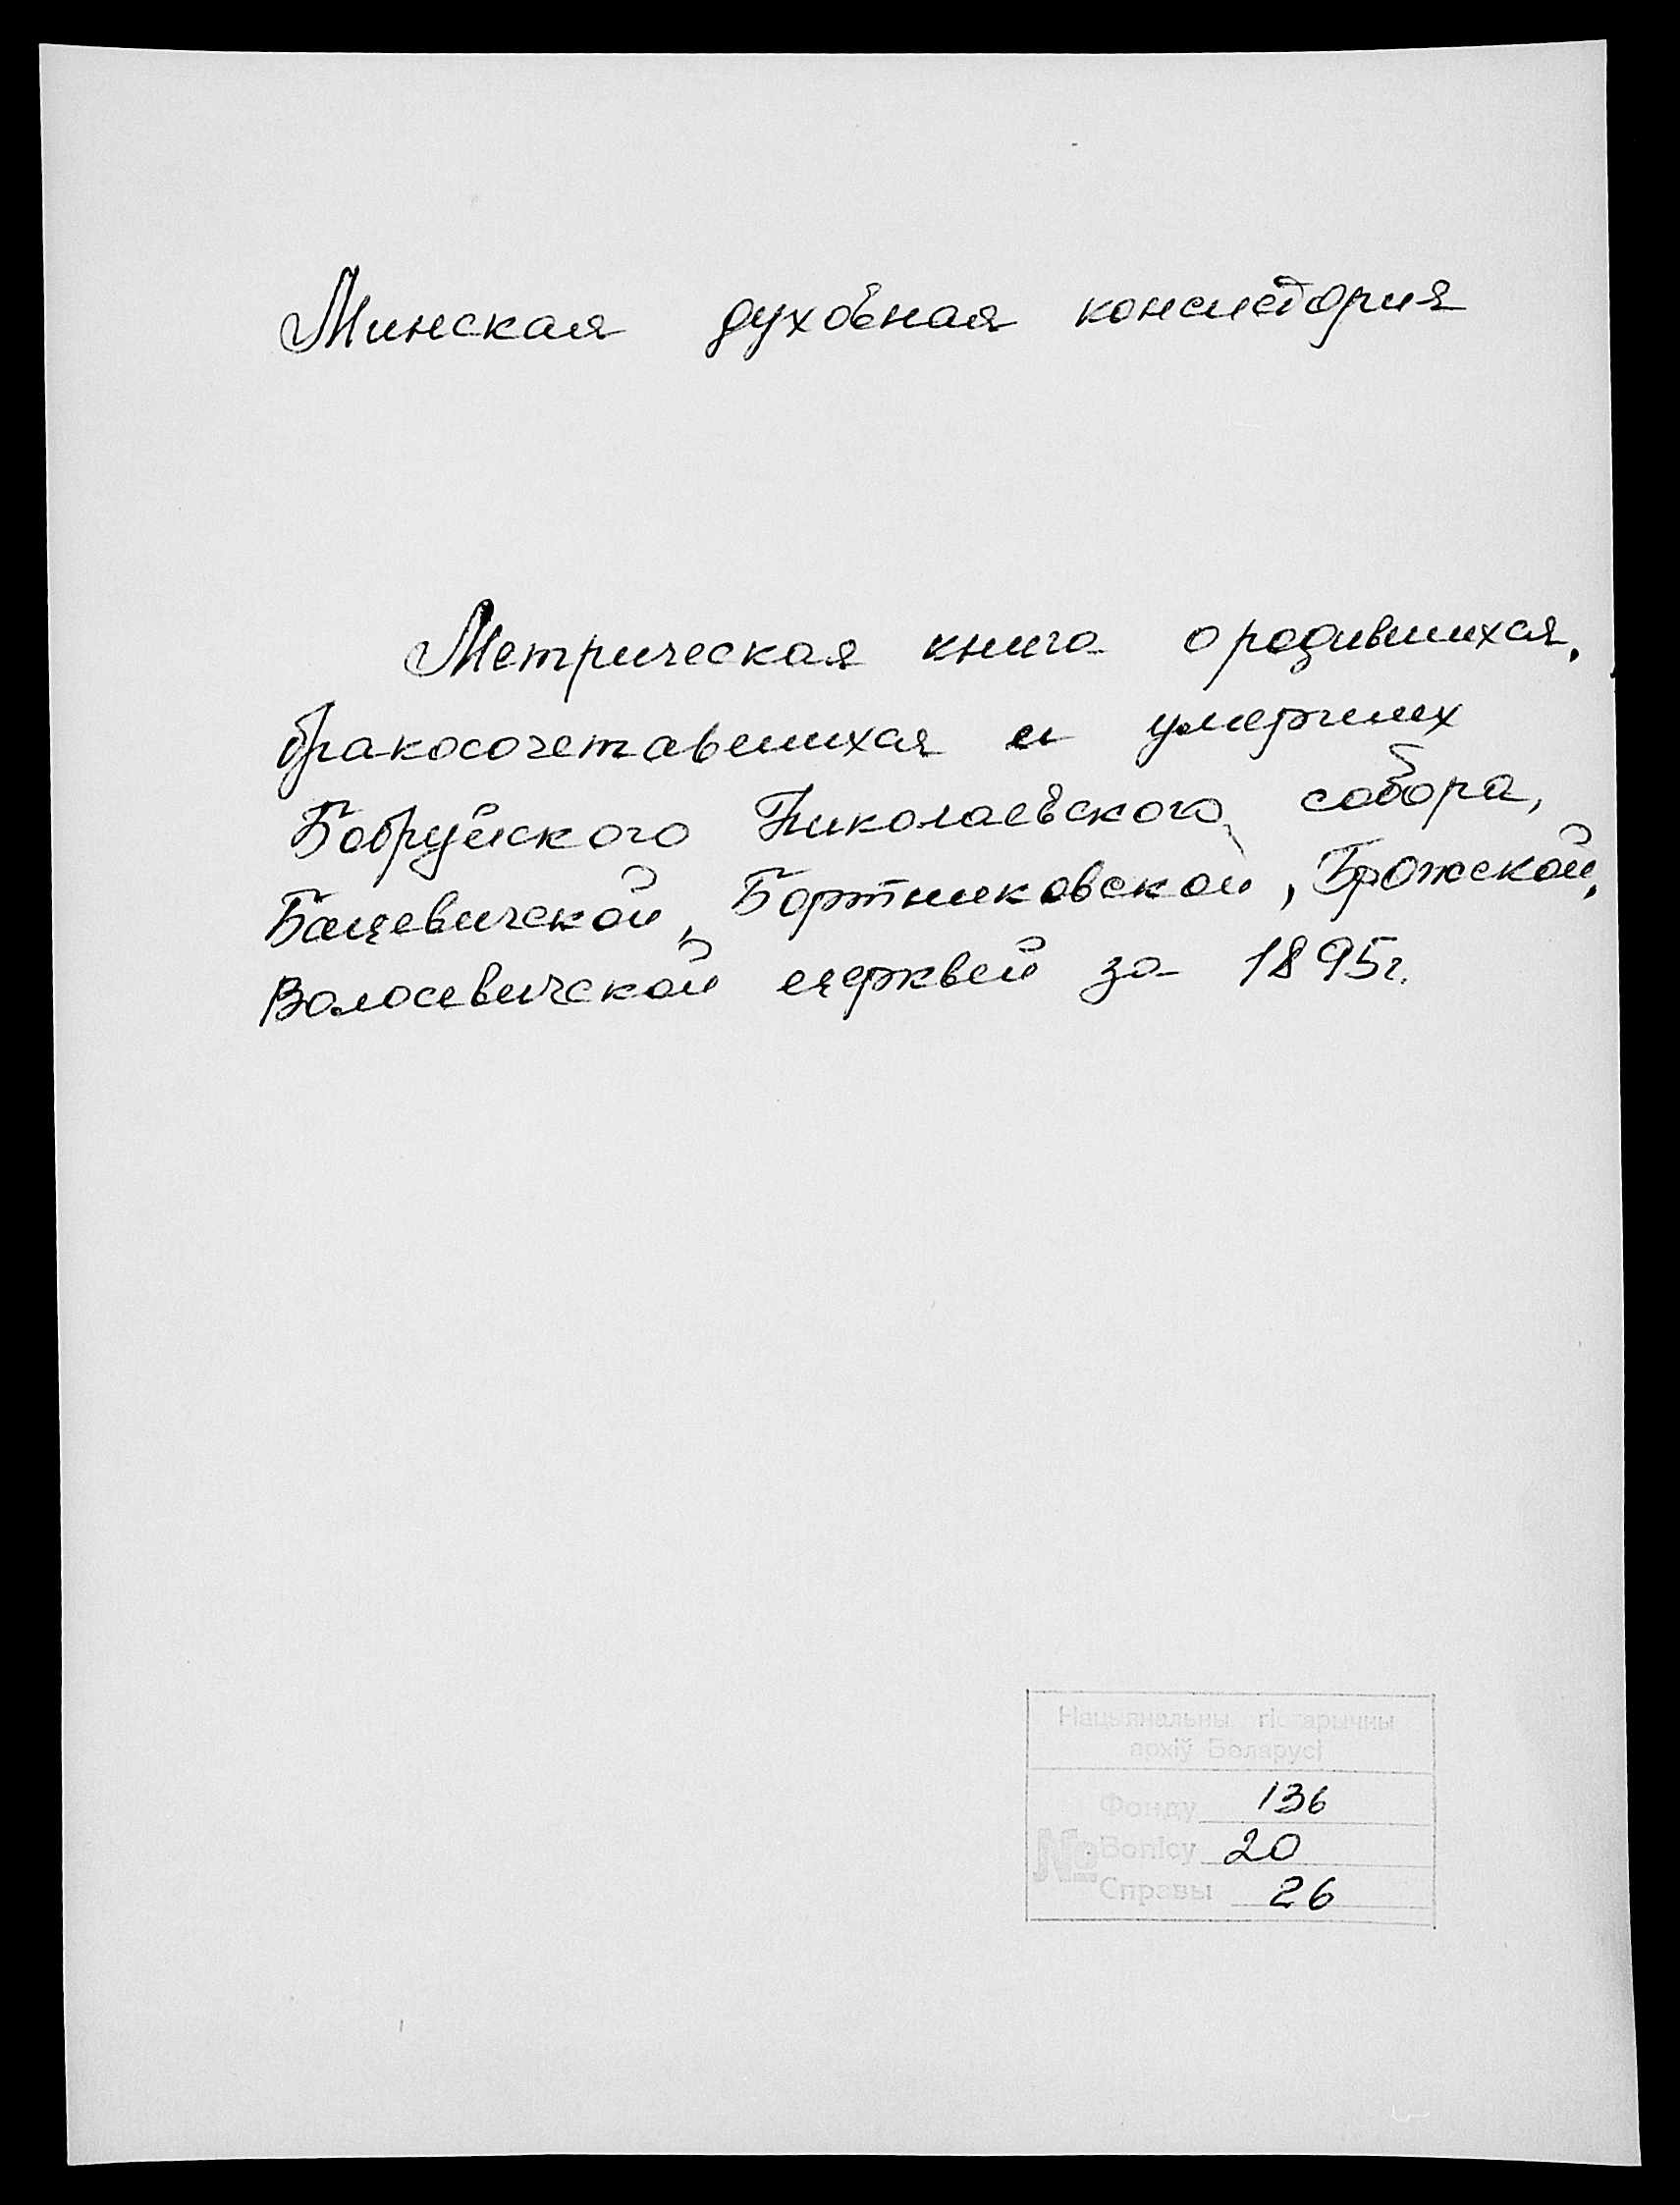 Минская духовная консистория
Метрическая книга о родившихся,
бракосочетавшихся и умерших
Бобруйского Николаевского собора,
Бацевичской, Бортниковской, Брожской,
Волосевичской церквей за 1895г.
Нацыянальны гістарычны
архіў Беларусі
Фонду 136
№ Вопісу 20
Справы 26